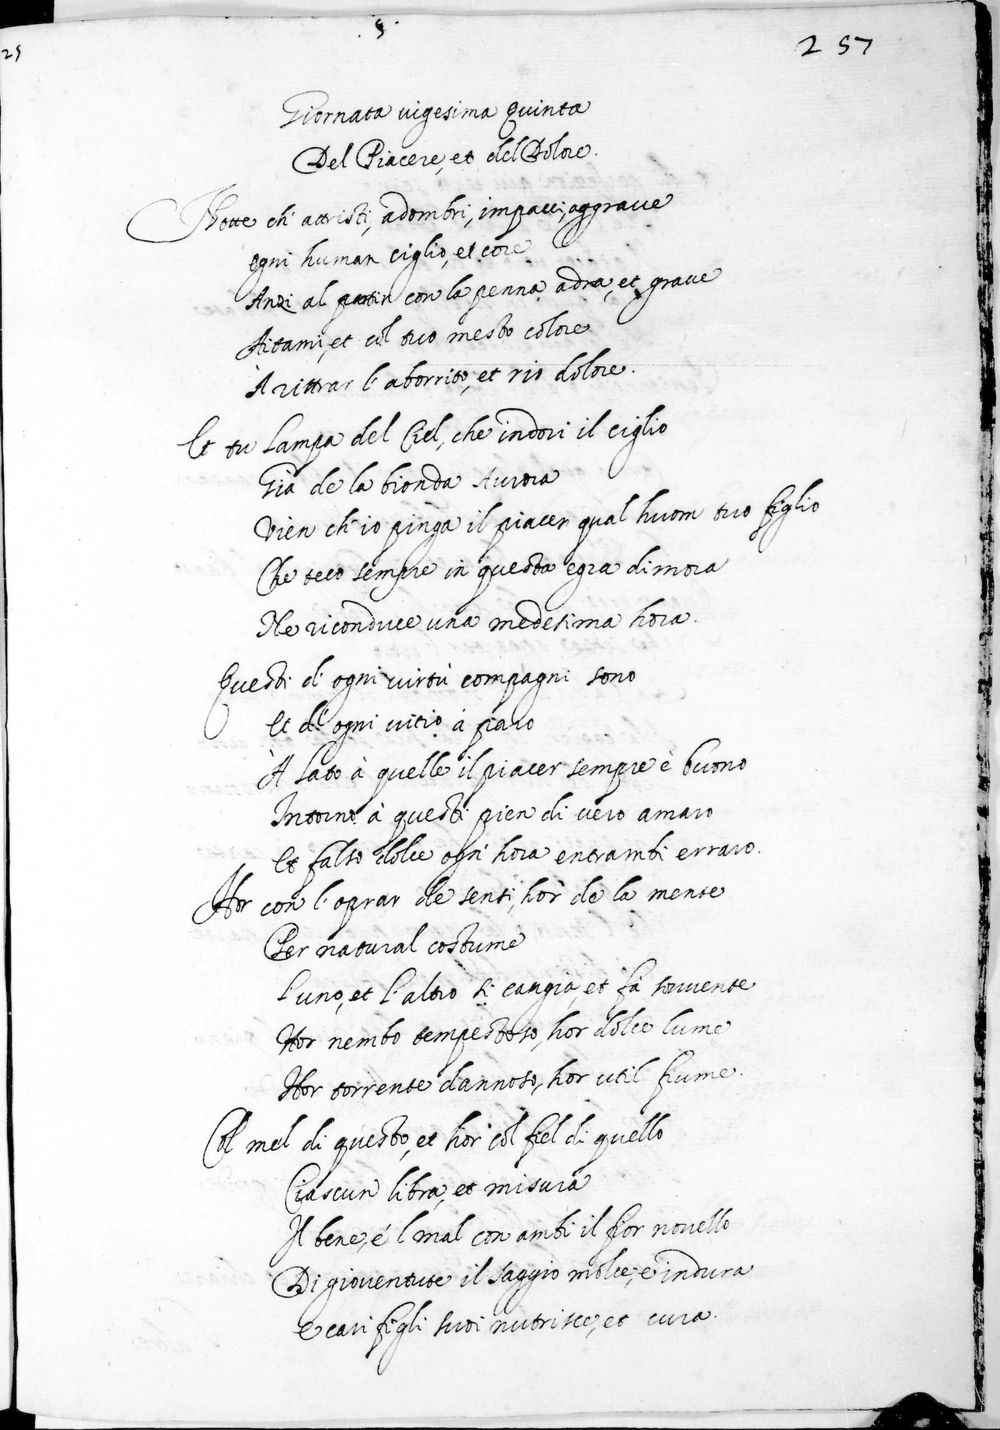 257
Giornata vigesima Quinta
Del Piacere, et del Dolore.
Notte ch' attristi, adombri, impacci, aggraue
ogni human ciglio, et core
Anzi al partir con la penna adra, et graue
Aitami, et col tuo mesto colore
À rittrar l' aborrito, et rio dolore.
Et tu Lampa del Ciel, che indori il ciglio
Già de la bionda Aurora
Vien ch' io pinga il piacer qual huom tuo figlio
Che teco sempre in questa egra dimora
Ne riconduce una medesima hora.
Questi d' ogni virtù compagni sono
Et d' ogni uitio à paro
À lato à quelle il piacer sempre è buono
Intorno à questi pien di uero amaro
Et falso dolce ogn' hora entrambi erraro.
Hor con l' oprar de sensi, hor de la mente
Per natural costume
L'uno, et l' altro si cangia, et fà souuente
Hor nembo tempestoso, hor dolce lume
Hor torrente dannoso, hor util fiume.
Col mel di questo, et hor col fiel di quello
Ciascun libra, et misura
Il bene, é l mal con ambi il fior nouello
Di giouentute il saggio molce, e indura
e cari figli suoi nutrisce, et cura.